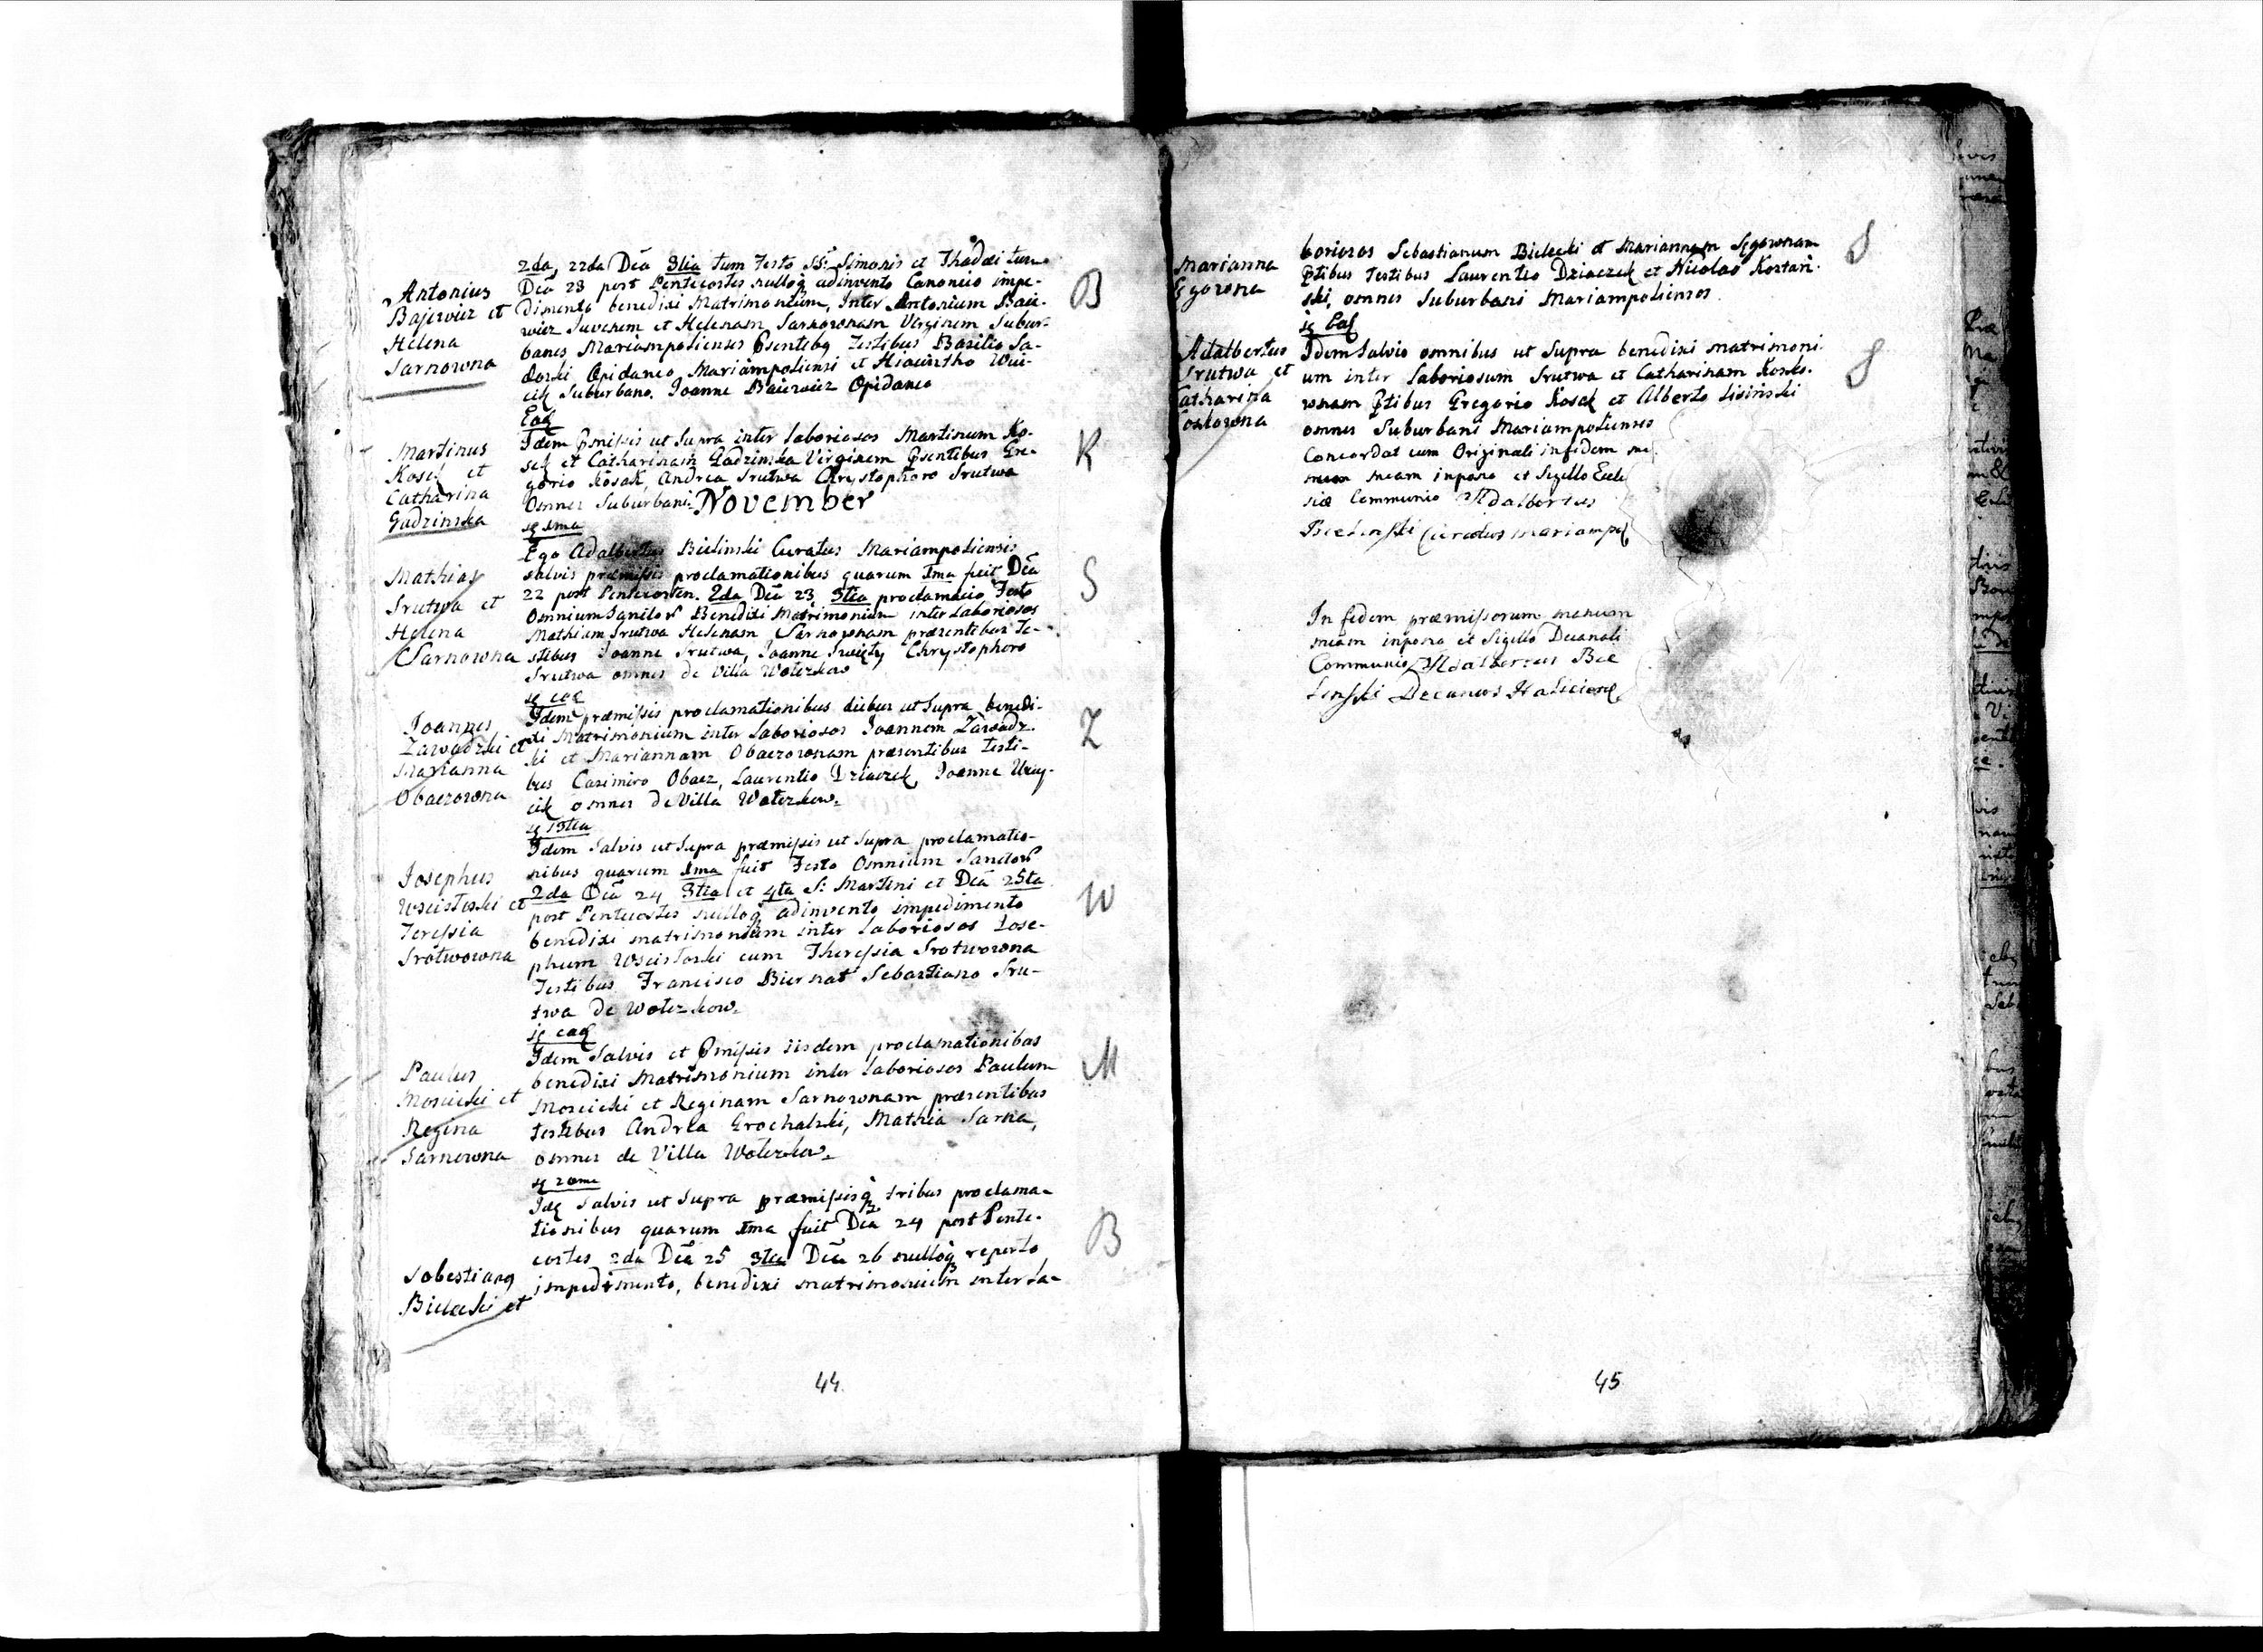 2da, 22da Dca 3tia tum Festo SS: Simonis et Thadæi tum
Antonius
Bajewicz et
Helena
Sarnowna
Dca 23 post Pentecostes nulloq adinvento Canonico impe-
dimento benedixi Matrimonium, Inter Antonium Baie-
wicz Juvenem et Helenam Sarnownam Virginem Subur-
banos Mariampolienses Psentibq Testibus Basilio Sa-
dorski Opidaneo Mariampoliensi et Hiacintho Woi-
cik Suburbano. Joanne Baiewicz Opidaneo
Eaq
Martinus
Kosek et
Catharina
Gadzinska
Idem Pmissis ut Supra inter Laboriosos Martinum Ko-
sek et Catharinam Gadzinska Virginem Psentibus Gre-
gorio Kosak, Andrea Srutwa Chrystophoro Srutwa
Omnes Suburbani.
B
K
November
1ma
Mathias
Srutwa et
Helena
Sarnowna
Ego Adalbertus Bielinski Curatus Mariampoliensis
salvis præmissis proclamationibus quarum 1ma fuit Dca
22 post Pentecosten. 2da Dca 23, 3tia proclamacio Festo
Omnium Sanctor Benedixi Matrimonium inter Laboriosos
Mathiam Srutwa Helenam Sarnownam præsentibus Te-
stibus Joanne Srutwa, Joanne Swięty Chrystophoro
Srutwa omnes de Villa Wołczkow
S
eaq
Joannes
Zawadzki et
Marianna
Obaczowna
Idem præmissis proclamationibus diebus ut Supra benedi-
xi Matrimonium inter Laboriosos Joannem Zawadz-
ki et Mariannam Obaczownam præsentibus testi-
bus Casimiro Obacz, Laurentio Dziaczek, Joanne
cik omnes de Villa Wołczkow.
Z
13tia
Josephus
Wscistoski et
Teressia
Srotwowna
Idem Salvis ut Supra præmissis ut Supra proclamatio-
nibus quarum 1ma fuit Festo Omnium Sanctor
2da Dca 24 3tia et 4ta S: Martini et Dca 25ta
post Pentecostes nulloq adinvento impedimento
benedixi matrimonium inter Laboriosos Jose-
phum Wscistoski cum Theressia Srotwowna
Testibus Francisco Biernat Sebastiano Sru-
twa de Wołczkow.
W
eaq
Paulus
Moscicki et
Regina
Sarnowna
Idem Salvis et Pmissis iisdem proclamationibus
benedixi Matrimonium inter Laboriosos Paulum
Moscicki et Reginam Sarnownam præsentibus
testibus Andrea Grochalski, Mathia Sarna,
omnes de Villa Wołczkow.
M
Sobestianq
Bielecki et
Idq Salvis ut Supra præmissisq tribus proclama-
tionibus quarum 1ma fuit Dca 24 post Pente-
costes 2da Dca 25 3tia Dca 26 nulloq reperto
impedimento, benedixi matrimonium inter La-
B
44.
Marianna
Sgorowna
boriosos Sebastianum Bielecki et Mariannam Sgorownam
Ptibus Testibus Laurentio Dziaczek et Nicolao Kostań-
ski, omnes Suburbani Mariampolienses.
S
Eaq
Adalbertus
Srutwa et
Catharina
Koskowna
Idem Salvis omnibus ut Supra benedixi matrimoni-
um inter Laboriosum Srutwa et Catharinam Kosko-
wnam Ptibus Gregorio Kosek et Alberto Lisiński
omnes Suburbani Mariampolienses
S
Concordat cum Originali in fidem ma
meam inpono et Sigillo Eccle
siæ Communio Adalbertus
Bielinski Curatus Mariampol
In fidem præmissorum manum
meam inpono et Sigillo Decanali
Communio Adalbertus Bie
linski Decanus Haliciens
45